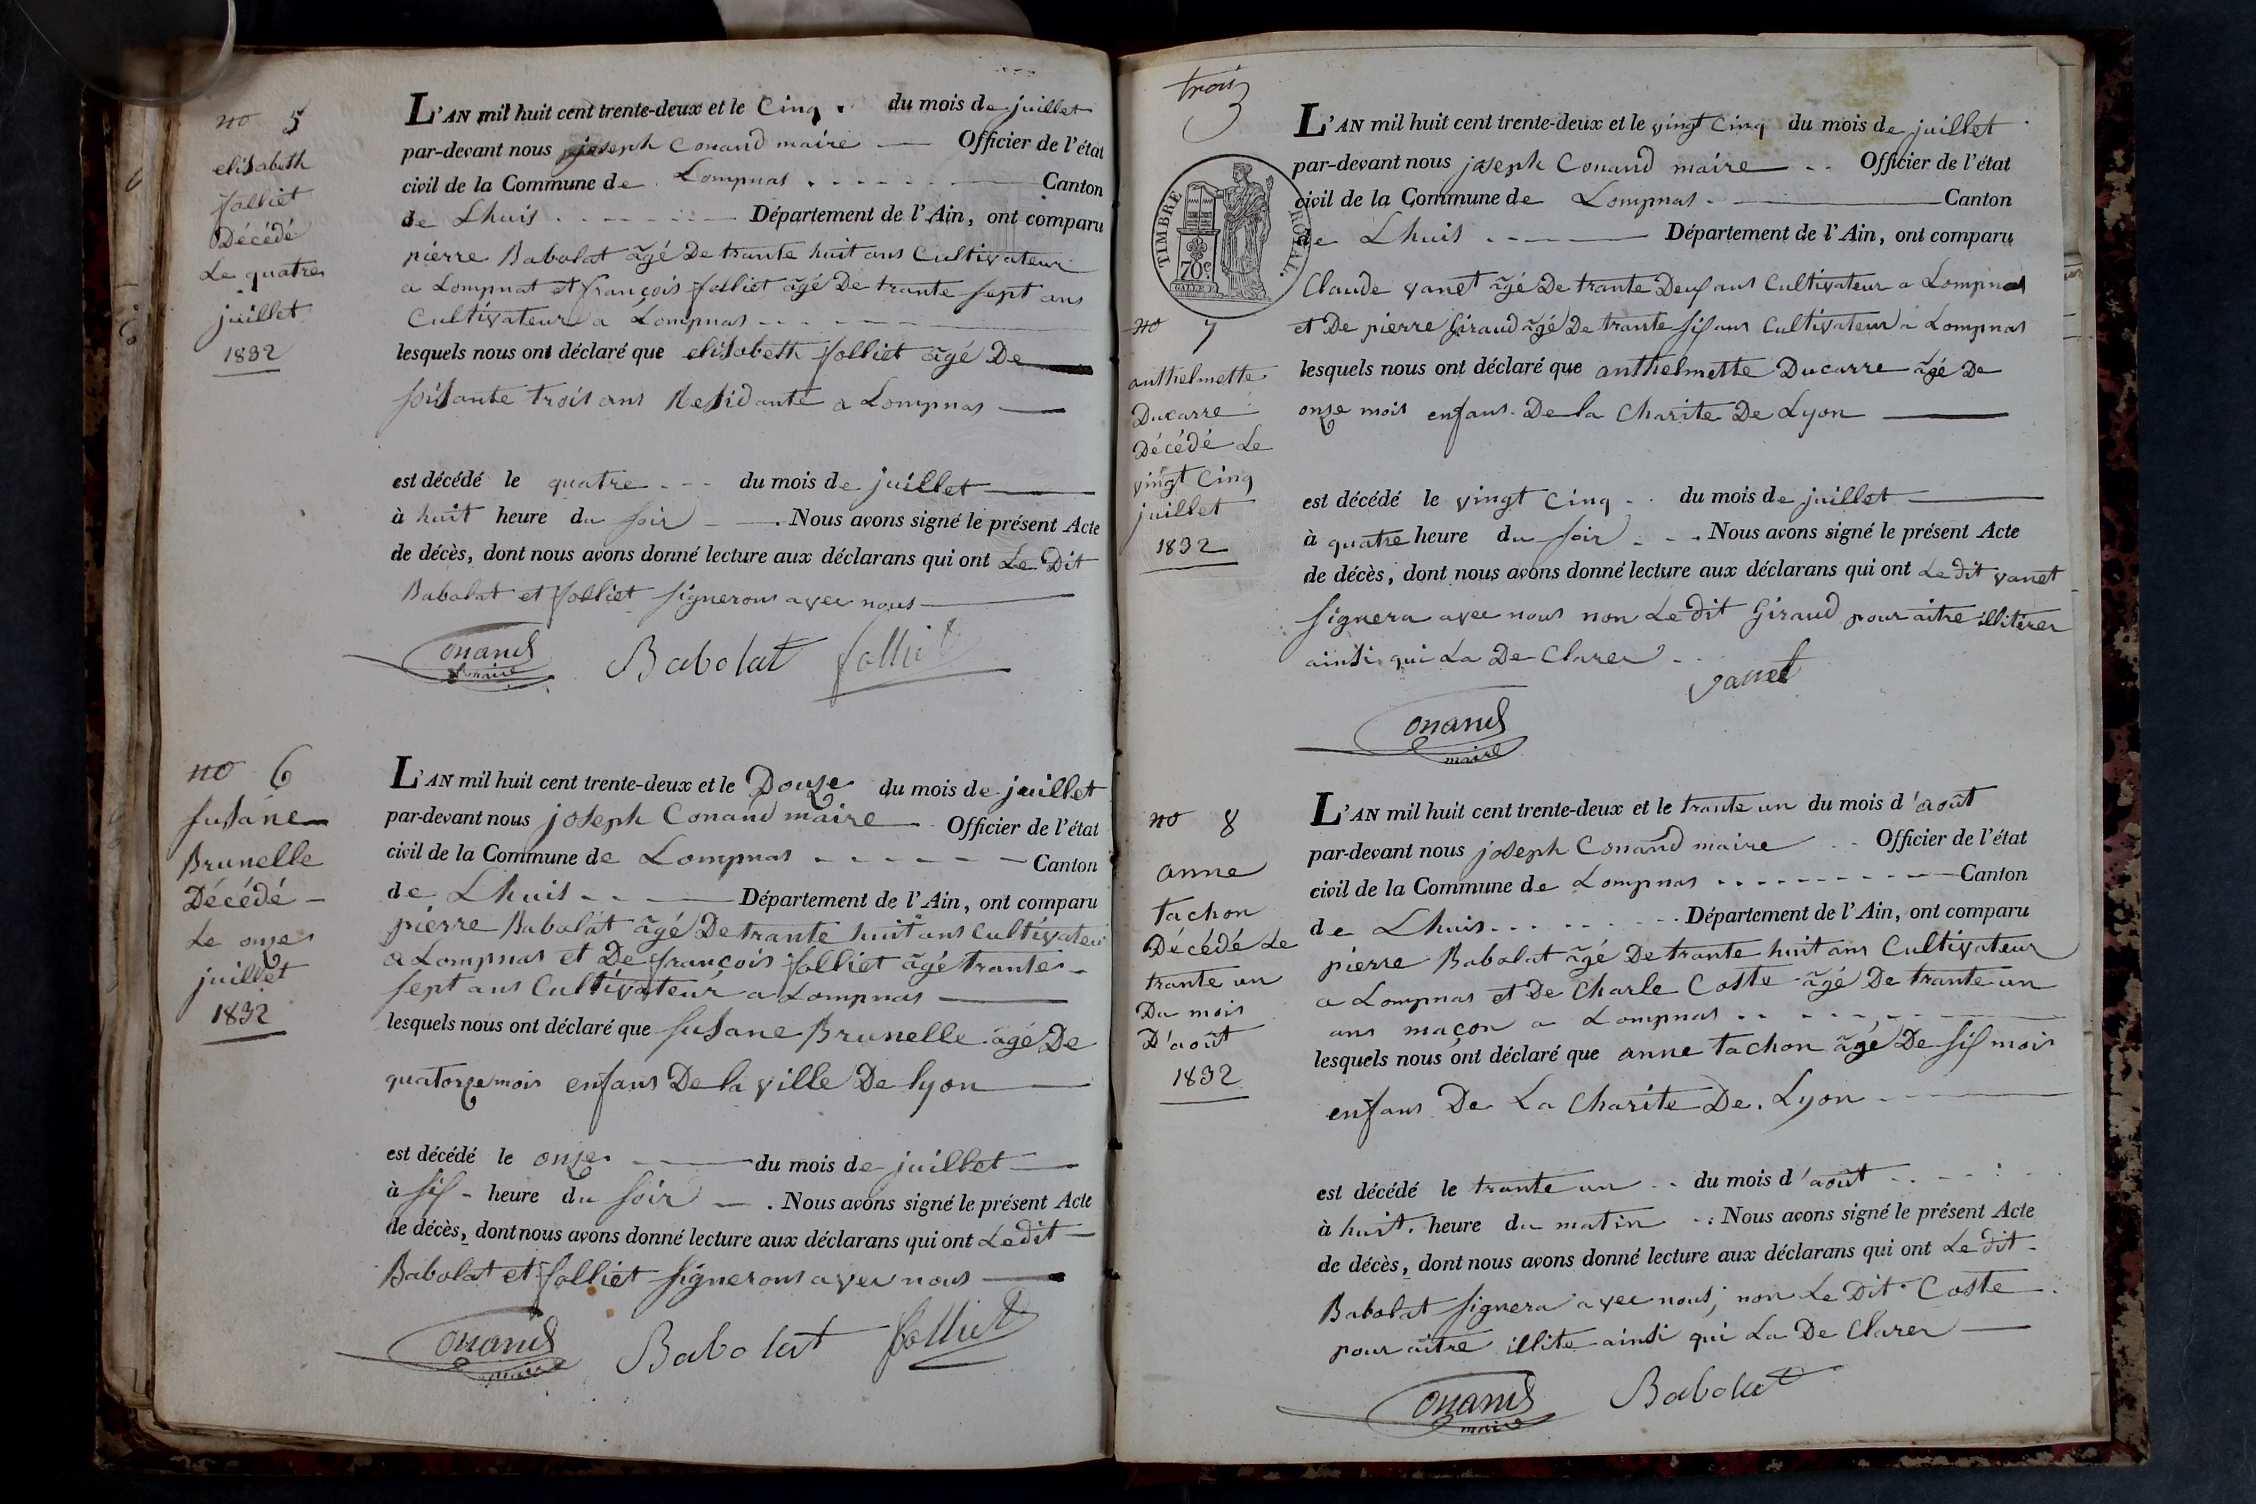 no 5
elisabeth
folliet
Décédé
Le quatre
juillet
1832
L'AN mil huit cent trente-deux et le Cinq du mois de juillet
par-devant nous joseph Conand maire Officier de l'état
civil de la Commune de Lompnas Canton
de Lhuis Département de l'Ain, ont comparu
pierre Babolat âgé De trante huit ans Cultivateur
a Lompnat et françois folliet âgé De trante sept ans
Cultivateur a Lompnas
lesquels nous ont déclaré que elisabeth folliet âgé De
soisante trois ans Residante a Lompnas
est décédé le quatre du mois de juillet
à huit heure du soir . Nous avons signé le présent Acte
de décès, dont nous avons donné lecture aux déclarans qui ont Le Dit
Babolat et folliet signerons avec nous
Conand
maire
Babolat folliet
no 6
susane
Brunelle
Décédé
Le onze
juillet
1832
L'AN mil huit cent trente-deux et le Douze du mois de juillet
par-devant nous joseph Conand maire Officier de l'état
civil de la Commune de Lompnas Canton
de Lhuis Département de l'Ain, ont comparu
pierre Babolat âgé De trante huit ans Cultivateur
a Lompnas et De françois folliet âgé trante
sept ans Cultivateur a Lompnas
lesquels nous ont déclaré que susane Brunelle âgé De
quatorze mois enfans De la ville De lyon
est décédé le onze du mois de juillet
à sis heure du soir . Nous avons signé le présent Acte
de décès, dont nous avons donné lecture aux déclarans qui ont Le dit
Babolat et folliet signerons avec nous
Conand
maire
Babolat folliet
trois
3
TIMBRE ROYAL.
70c.
no 7
anthelmette
Ducarre
Décédé Le
vingt Cinq
juillet
1832
L'AN mil huit cent trente-deux et le vingt Cinq du mois de juillet
par-devant nous joseph Conand maire Officier de l'état
civil de la Commune de Lompnas Canton
de Lhuis Département de l'Ain, ont comparu
Claude vanet âgé De trante Deus ans Cultivateur a Lompnas
et De pierre Giraud âgé De trante sis ans Cultivateur a Lompnas
lesquels nous ont déclaré que anthelmette Ducarre âgé De
onze mois enfans De la Charite De Lyon
est décédé le vingt Cinq du mois de juillet
à quatre heure du soir . Nous avons signé le présent Acte
de décès, dont nous avons donné lecture aux déclarans qui ont Le dit vanet
signera avec nous non Le dit Giraud pour aitre illiterer
ainsi qui La De Clarer
vanet
Conand
maire
no 8
anne
tachon
Décédé Le
trante un
Du mois
D'août
1832
L'AN mil huit cent trente-deux et le trante un du mois d'août
par-devant nous joseph Conand maire Officier de l'état
civil de la Commune de Lompnas Canton
de Lhuis Département de l'Ain, ont comparu
pierre Babolat âgé De trante huit ans Cultivateur
a Lompnas et De Charle Coste âgé De trante un
ans maçon a Lompnas
lesquels nous ont déclaré que anne tachon âgé De sis mois
enfans De La Charite De Lyon
est décédé le trante un du mois d'août
à huit heure du matin . Nous avons signé le présent Acte
de décès, dont nous avons donné lecture aux déclarans qui ont Le dit
Babolat signera avec nous, non Le Dit Coste
pour aitre illite ainsi qui La De Clarer
Conand
maire
Babolat